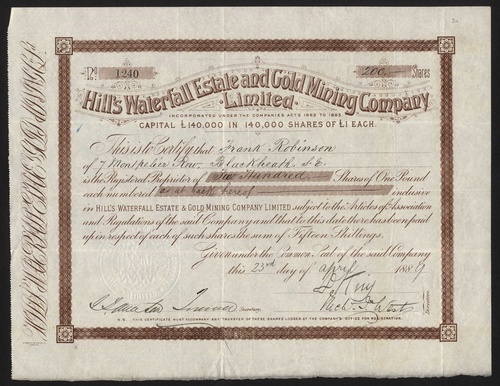 No. 1240 200 Shares
Hill's Waterfall Estate and Gold Mining Company
Limited.
INCORPORATED UNDER THE COMPANIES ACTS 1862 TO 1883.
CAPITAL £140,000 IN 140,000 SHARES OF £1 EACH.
This is to Certify that Frank Robinson
of 7 Montpelier Row, Blackheath S.E.
is the Registered Proprietor of Two Hundred Shares of One Pound
each numbered as at back hereof inclusive
in HILL'S WATERFALL ESTATE & GOLD MINING COMPANY LIMITED subject to the Articles of Association
and Regulations of the said Company and that to this date there has been paid
upon respect of each of such shares the sum of Fifteen Shillings.
Given under the Common Seal of the said Company
this 23rd day of April 1889
Secretary.
Directors
N.B. THIS CERTIFICATE MUST ACCOMPANY ANY TRANSFER OF THESE SHARES LODGED AT THE COMPANY'S OFFICE FOR REGISTRATION.